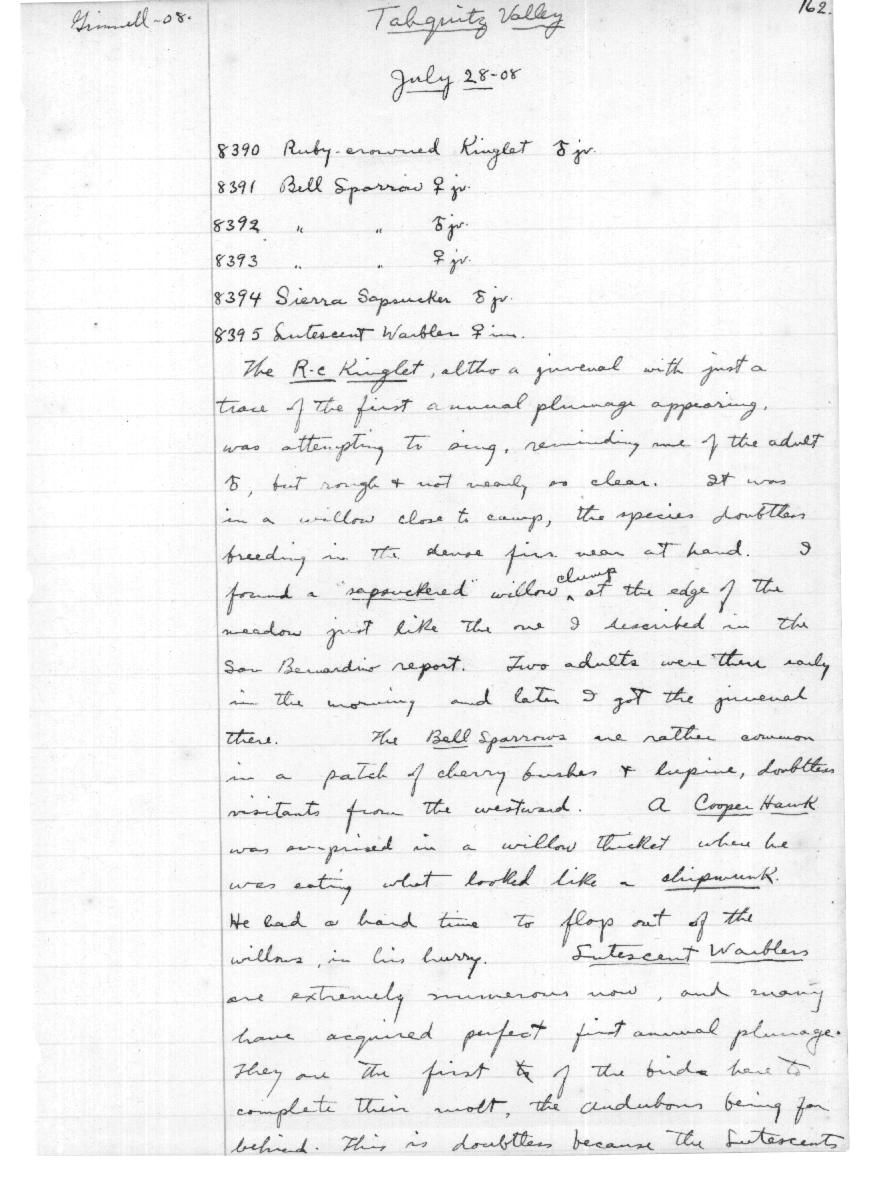 Grinnell-08.
162.
Tahquitz Valley
July 28-08
8390 Ruby-crowned Kinglet ♂ jv.
8391 Bell Sparrow ♀ jv.
8392 " " ♂ jv.
8393 " " ♀ jv.
8394 Sierra Sapsucker ♂ jv.
8395 Lutescent Warbler ♀ im.
The R-c Kinglet, altho a juvenal with just a
trace of the first annual plumage appearing,
was attempting to sing, reminding me of the adult
♂, but rough & not nearly so clear. It was
in a willow close to camp, the species doubtless
breeding in the dense firs near at hand. I
found a "sapsuckered" willow clump at the edge of the
meadow just like the one I described in the
San Bernardino report. Two adults were there early
in the morning and later I got the juvenal
there. The Bell Sparrows are rather common
in a patch of cherry bushes & lupine, doubtless
visitants from the westward. A Cooper Hawk
was surprised in a willow thicket where he
was eating what looked like a chipmunk.
He had a hard time to flop out of the
willows, in his hurry. Lutescent Warblers
are extremely numerous now, and many
have acquired perfect first annual plumage.
They are the first of the birds here to
complete their molt, the audubons being far
behind. This is doubtless because the Lutescents